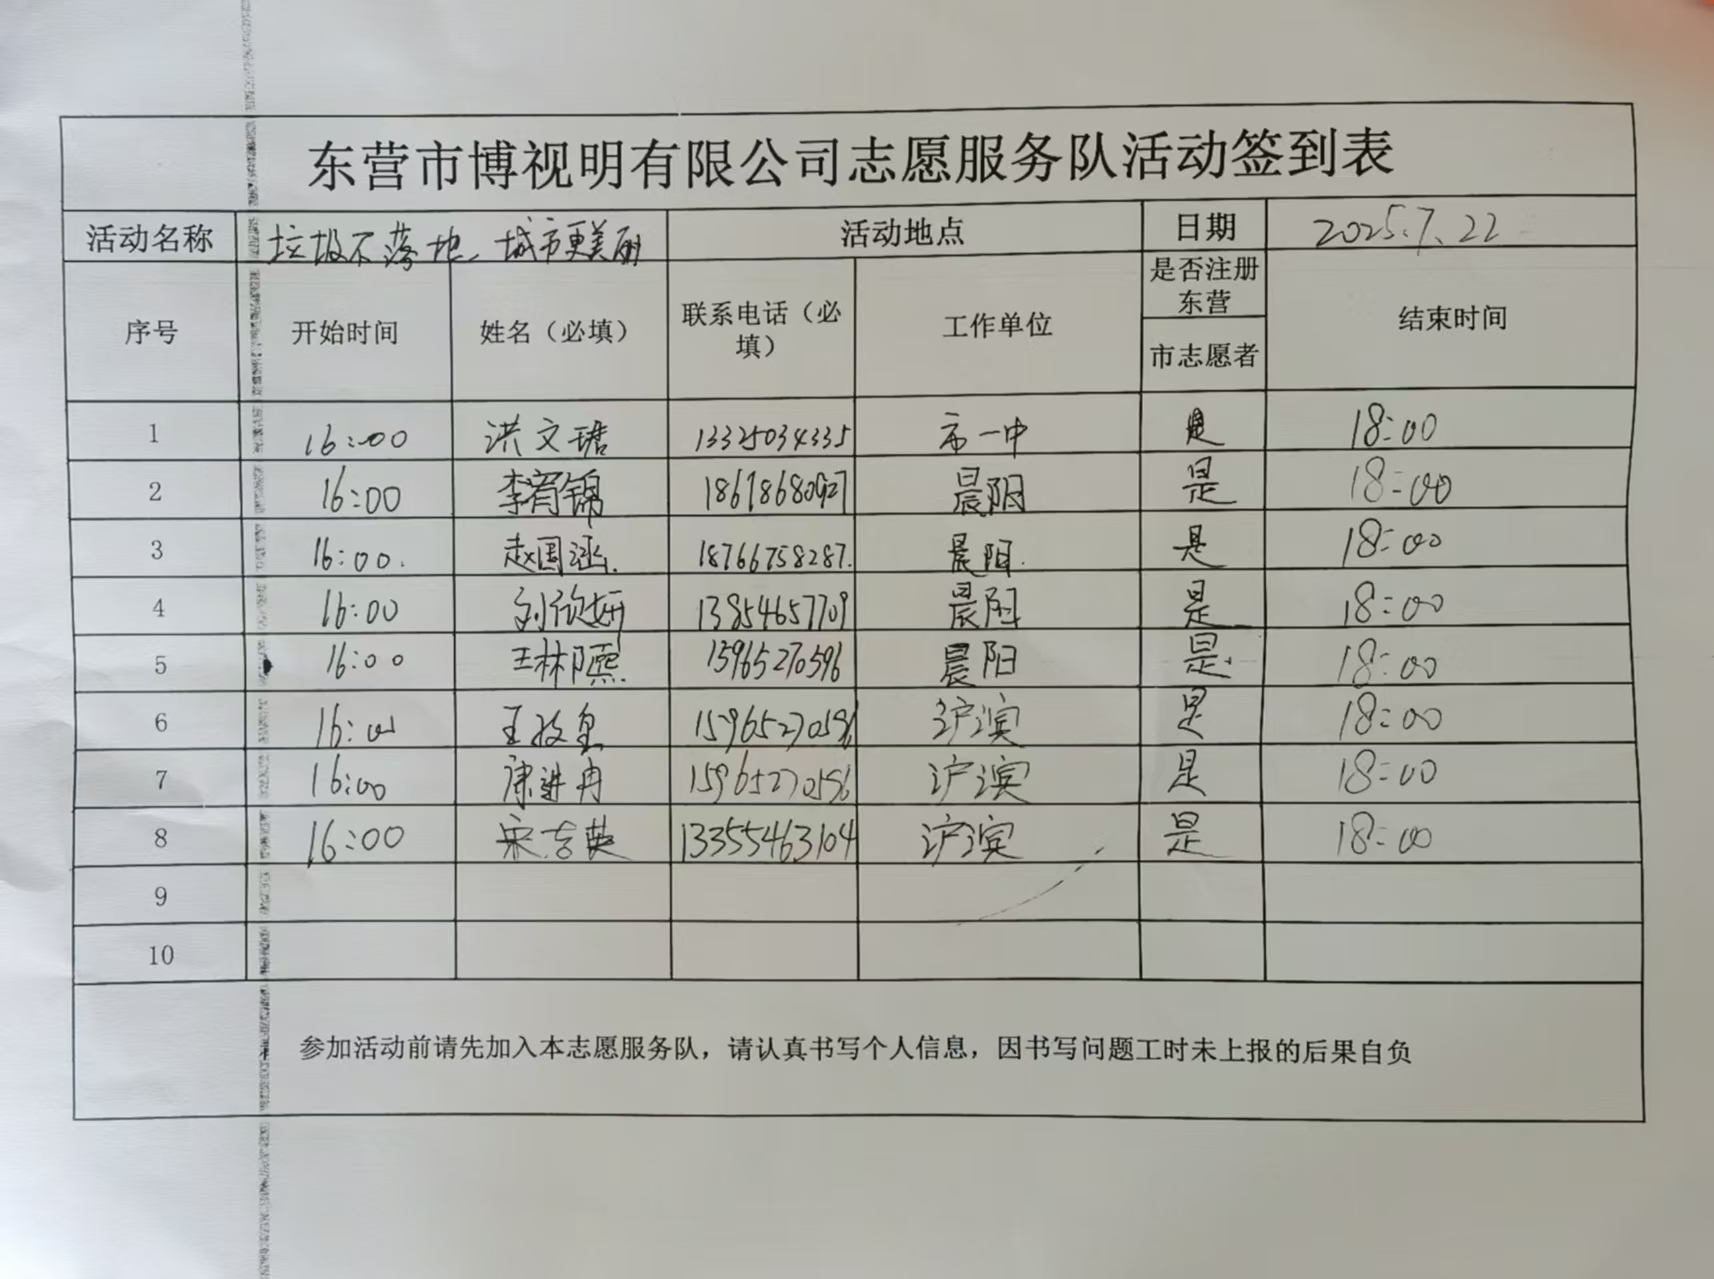 东营市博视明有限公司志愿服务队活动签到表
活动名称 垃圾不落地、城市更美丽 活动地点 日期 2025.7.22
序号 开始时间 姓名（必填） 联系电话（必填） 工作单位 是否注册东营市志愿者 结束时间
1 16:00 洪文琚 13325034335 市一中 是 18:00
2 16:00 李宥锦 18678680927 晨阳 是 18:00
3 16:00. 赵国涵. 18766758287. 晨阳. 是 18:00
4 16:00 刘欣妍 13854657709 晨阳 是 18:00
5 16:00 王林熙. 15965270596 晨阳 是. 18:00
6 16:00 王 15965270596 沪滨 是 18:00
7 16:00 康进冉 15965270596 沪滨 是 18:00
8 16:00 宋吉英 13355463104 沪滨 是 18:00
9
10
参加活动前请先加入本志愿服务队，请认真书写个人信息，因书写问题工时未上报的后果自负